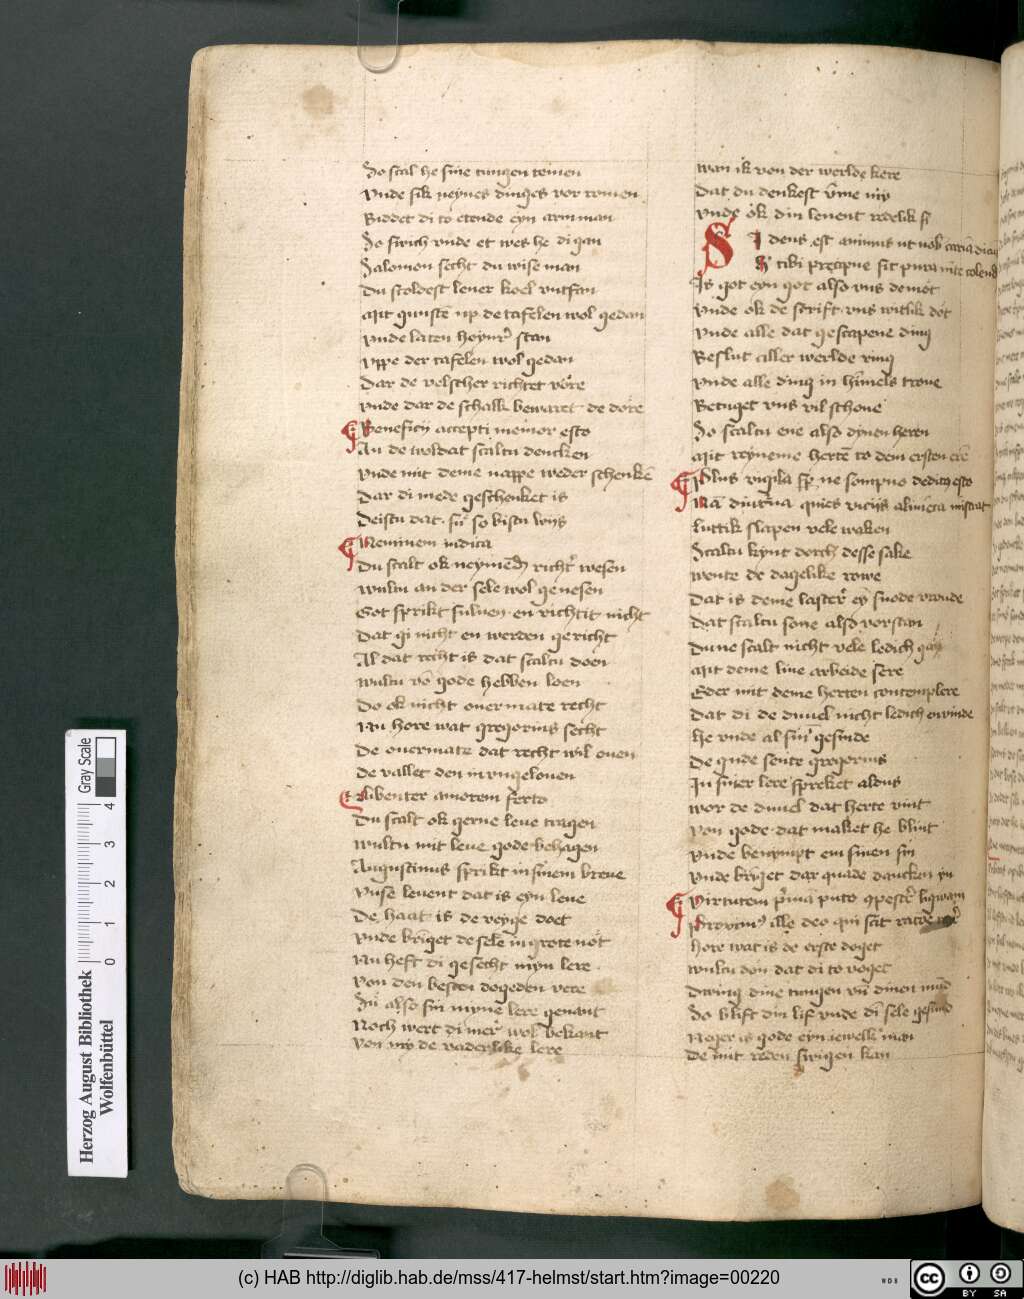 So scal he sine tungen temen
vnde sik neynes dinges vor romen
Biddet di to etende eyn arm man
So swich vnde et wes he di gan
Salomon secht du wise man
Du scoldest lever koel vntfan
Mit gunste up de tafelen wol gedan
vnde laten honr stan
vppe der tafelen wol gedan
Dar de velscher richtet vore
vnde dar de schalk bewaret de dore
Beneficij accepti memor esto
An de woldat scaltu dencken
vnde mit deme nappe weder schenken
Dar di mede geschenket is
Deistu dat so bistu wys
Neminem iudica
Du scalt ok neymende richter wesen
wultu an der sele wol genesen
Got sprikt suluen en richtit nicht
Dat gi nicht en werden gericht
Al dat recht is dat scaltu doen
wultu von gode hebben loen
Do ok nicht ouermate recht
Nu hore wat gregorius secht
De ouermate dat recht wil ouen
De vallet den in vngelouen
Libenter amorem ferto
Du scalt ok gerne leue tragen
wultu mit leue gode behagen
Augustinus sprikt in sinem breue
Vnse leuent dat is eyn leue
De haat is de veyge doet
vnde bringet de sele in grote not
Nu heft di gesecht myn lere
Von den besten dogeden vere
Su also sin myne lere genant
Noch wert di mer wol bekant
Von my de vaderlike lere
wan ik von der werlde kere
Dat du denkest vme my
vnde ok din leuent redelik si
Si deus est animus ut nobis carmina dicunt
Hic tibi precipue sit pura mente colendus
Is got eyn got also vns demot
vnde ok de scrift vns witlik dot
vnde alle dat gescapene ding
Beslut aller werlde ring
vnde alle ding in himels trone
Betuget vns vil schone
So scaltu ene also dynen heren
Mit reyneme herten to dem ersten eren
Plus vigila semper ne sompno deditus esto
Nam diuturna quies viciis alimenta ministrat
luttik slapen vele waken
Scaltu kynt dorch desse sake
wente de dagelike rowe
Dat is deme laster ey snode vroude
Dat scaltu sone also vorstan
Du ne scalt nicht vele ledich gan
Mit deme liue arbeide sere
Eder mit deme herten contemplere
Dat di de duuel nicht ledich en vinde
he vnde al sin gesinde
De gude sente gregorius
In siner lere spreket aldus
wor de duuel dat herte vint
von gode dat maket he blint
vnde benympt em sinen sin
vnde bringet dar quade dancken yn
Virtutem prima puto compescere ligwam
Proximus ille deo qui scit racione
hore wat is de erste doget
wultu don dat di to voget
Dwing dine tungen vnd dinen mund
So blift din lif vnde din sele gesund
Neger is gode eyn iewelk man
De mit reden swigen kan
Herzog August Bibliothek
Wolfenbüttel
0 1 2 3 4
Gray Scale
(c) HAB http://diglib.hab.de/mss/417-helmst/start.htm?image=00220
WDB
cc BY SA